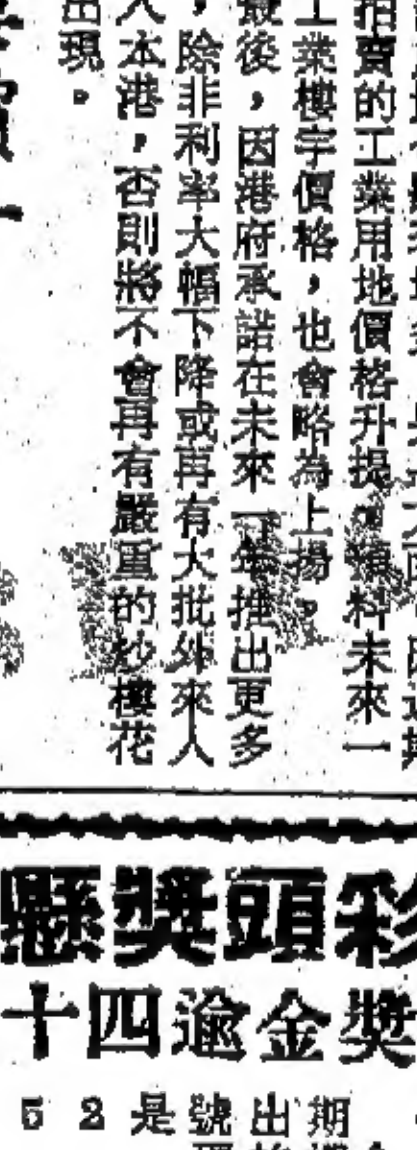 拍賣的工業用地價格升揚，預料未來一
工業樓宇價格，也會略為上揚。
最後，因港府承諾在未來一年推出更多
，除非利率大幅下降或再有大批外來人
入本港，否則將不會再有嚴重的炒樓花
出現。
彩頭獎懸
獎金逾四十
期出號是25